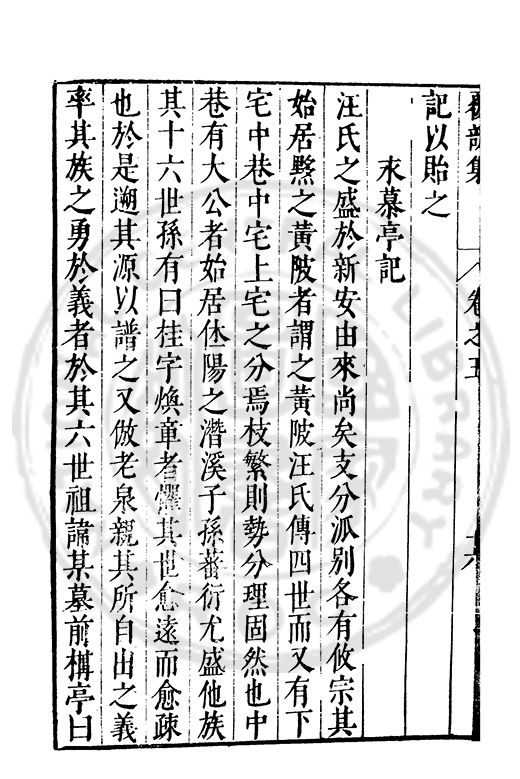 集 卷之五
記以貽之
永慕亭記
汪氏之盛於新安由來尚矣支分派別各有攸宗其
始居黟之黃陂者謂之黃陂汪氏傳四世而又有下
宅中巷中宅上宅之分焉枝繁則勢分理固然也中
巷有大公者始居休陽之潛溪子孫蕃衍尤盛他族
其十六世孫有曰桂字煥章者懼其世愈遠而愈疎
也於是遡其源以譜之又倣老泉親其所自出之義
率其族之勇於義者於其六世祖諱某墓前構亭曰